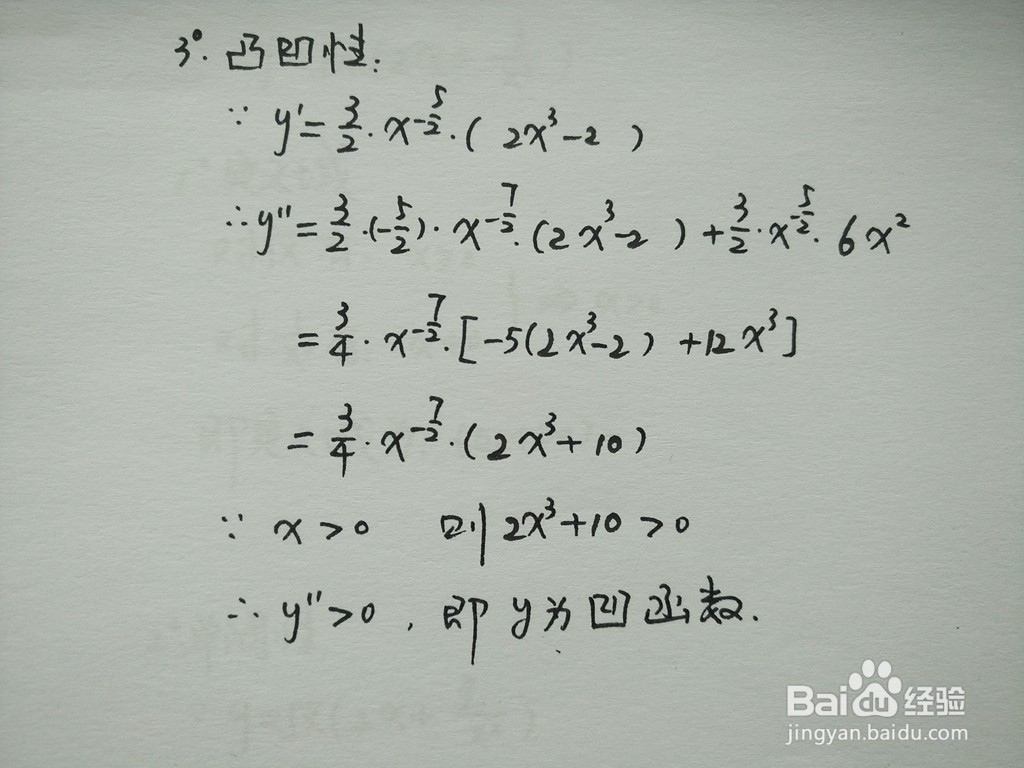 3°. 凸凹性:
∵ y'=3/2·x^(-5/2)·( 2x^3-2 )
∴y''=3/2·(-5/2)·x^(-7/2)·(2x^3-2 )+3/2·x^(-5/2)·6x^2
=3/4·x^(-7/2)·[-5(2x^3-2) +12x^3]
=3/4·x^(-7/2)·(2x^3+10)
∵ x>0 则 2x^3+10>0
∴ y''>0 , 即 y为凹函数.
Bai du 经验
jingyan.baidu.com